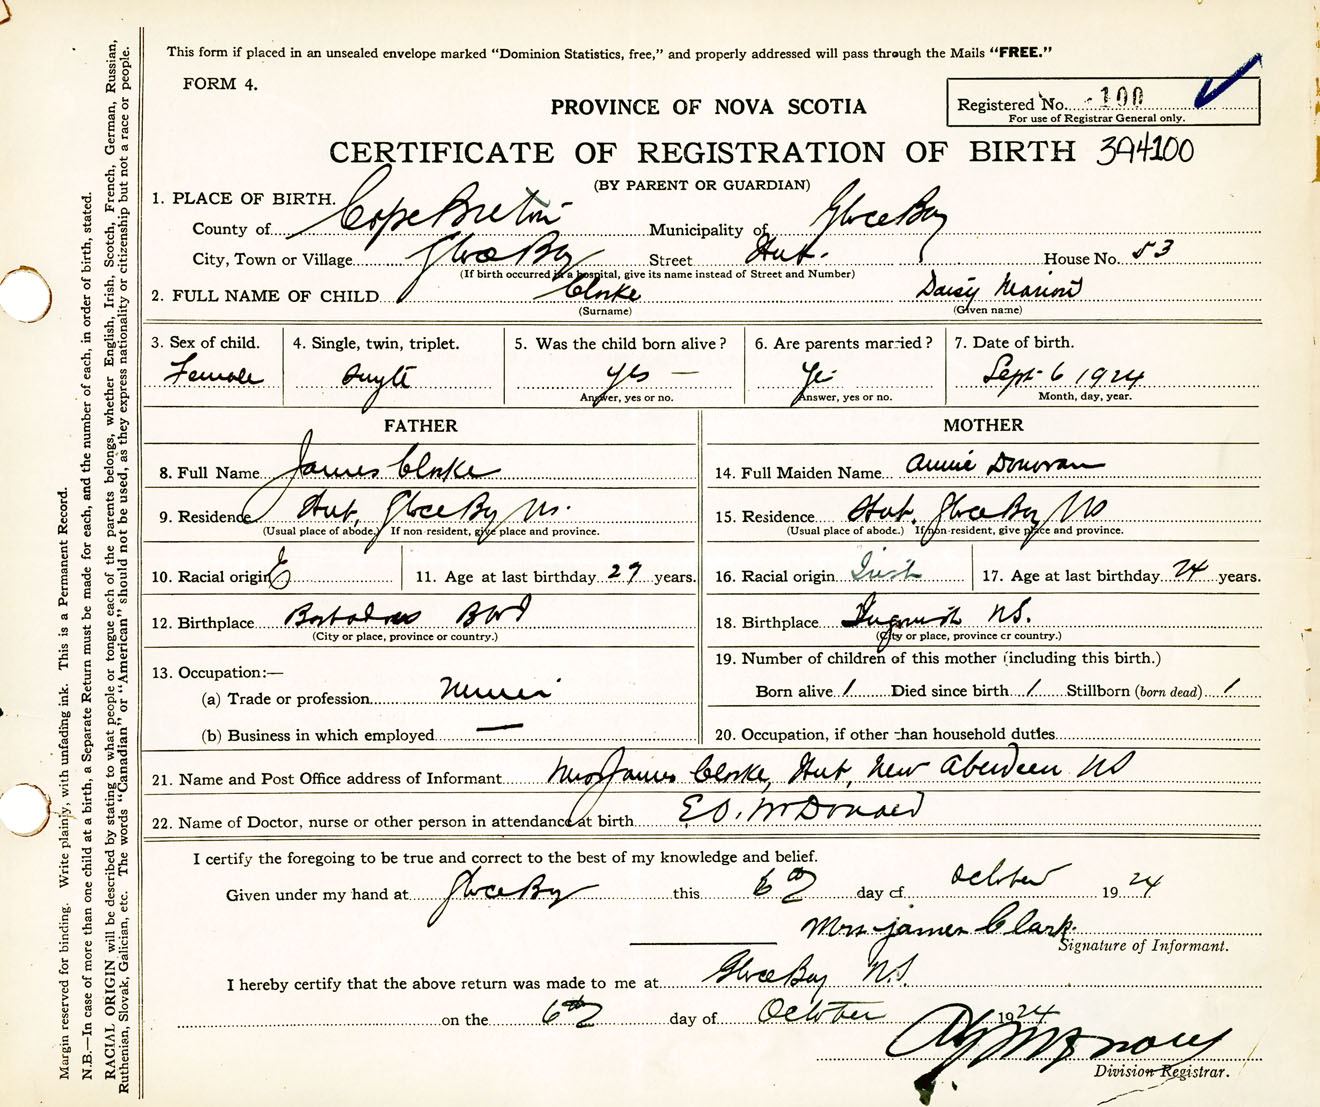 This form if placed in an unsealed envelope marked "Dominion Statistics, free," and properly addressed will pass through the Mails "FREE."
FORM 4.
PROVINCE OF NOVA SCOTIA
Registered No. 100
For use of Registrar General only.
CERTIFICATE OF REGISTRATION OF BIRTH 394100
(BY PARENT OR GUARDIAN)
1. PLACE OF BIRTH.
County of Cape Breton Municipality of Glace Bay
City, Town or Village Glace Bay Street Hut. House No. 53
(If birth occurred in a hospital, give its name instead of Street and Number)
2. FULL NAME OF CHILD Clorke Daisy Marion
(Surname) (Given name)
3. Sex of child. 4. Single, twin, triplet. 5. Was the child born alive? 6. Are parents married? 7. Date of birth.
Female yes — Sept 6 1924
Answer, yes or no. Answer, yes or no. Month, day, year.
FATHER
8. Full Name James Clorke
9. Residence Hut, Glace Bay NS.
(Usual place of abode.) If non-resident, give place and province.
10. Racial origin E 11. Age at last birthday 27 years.
12. Birthplace Barbados BWI
(City or place, province or country.)
13. Occupation:—
(a) Trade or profession
(b) Business in which employed —
MOTHER
14. Full Maiden Name Annie Donovan
15. Residence Hut, Glace Bay NS
(Usual place of abode.) If non-resident, give place and province.
16. Racial origin Irish 17. Age at last birthday 24 years.
18. Birthplace NS.
(City or place, province or country.)
19. Number of children of this mother (including this birth.)
Born alive 1 Died since birth 1 Stillborn (born dead) 1
20. Occupation, if other than household duties
21. Name and Post Office address of Informant Mrs James Clorke, Hut, New Aberdeen NS
22. Name of Doctor, nurse or other person in attendance at birth McDonald
I certify the foregoing to be true and correct to the best of my knowledge and belief.
Given under my hand at Glace Bay this 6th day of October 1924
Mrs James Clark.
Signature of Informant.
I hereby certify that the above return was made to me at Glace Bay N.S.
on the 6th day of October 1924
Division Registrar.
Margin reserved for binding. Write plainly, with unfading ink. This is a Permanent Record.
N.B.—In case of more than one child at a birth, a Separate Return must be made for each, and the number of each, in order of birth, stated.
RACIAL ORIGIN will be described by stating to what people or tongue each of the parents belongs, whether English, Irish, Scotch, French, German, Russian,
Ruthenian, Slovak, Galician, etc. The words "Canadian" or "American" should not be used, as they express nationality or citizenship but not a race or people.